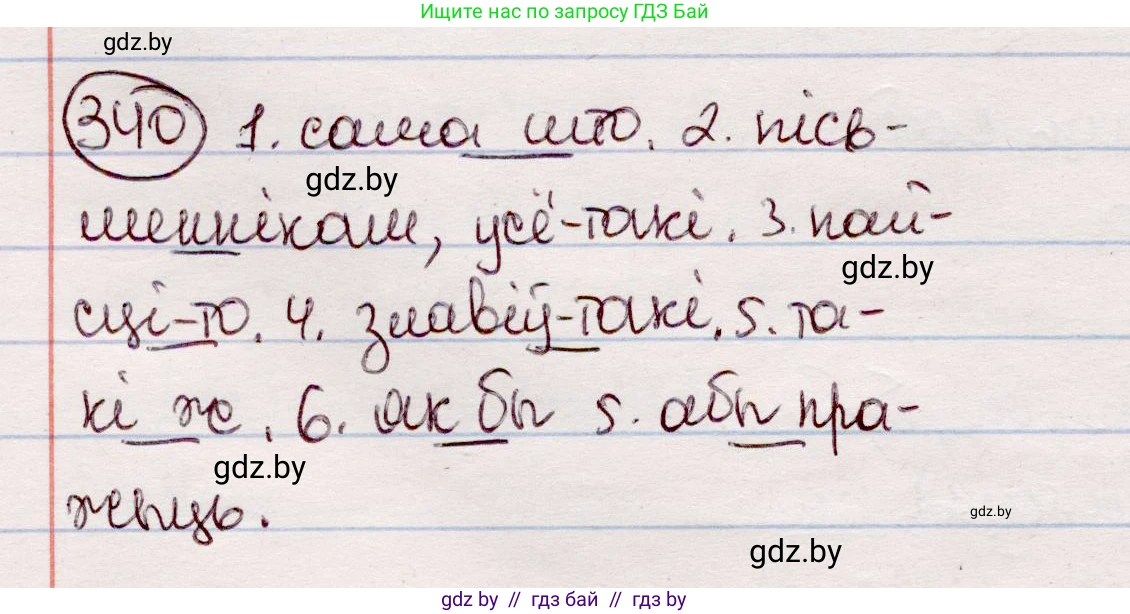 Ищите нас по запросу ГДЗ Бай
gdz.by
340 1. сама што. 2. пісь-
gdz.by
меннікам, усё-такі. 3. пай-
gdz.by
сці-то. 4. злавіў-такі. 5. та-
кі ж. 6. як бы 5. абы пра-
gdz.by
жыць.
gdz.by
gdz.by
gdz by // гдз бай // gdz by